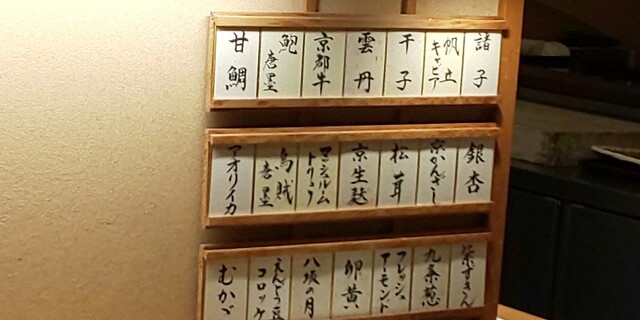 諸子
帆立
キャビア
干子
雲丹
京都牛
鮑
唐墨
甘鯛
銀杏
京かんざし
松茸
京生麩
マッシュルーム
トリュフ
烏賊
唐墨
アオリイカ
紫ずきん
九条葱
フレッシュ
アーモンド
卵黄
八坂の月
えんどう豆
コロッケ
むかご